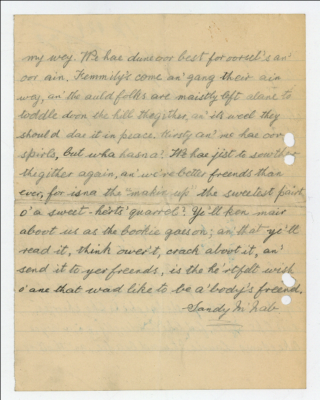 my wey. We hae dune oor best for oorsel's an'
oor ain. Femmily's come an' gang their ain
way, an' the auld folks are maistly left alane to
toddle doon the hill thegither, an' it's weel they
should dae it in peace. Kirsty an' me hae oor
spirls, but wha hasna? We hae jist to sowther
thegither again, an' we're better freends than
ever, for isna the "makin' up" the sweetest pairt
o' a sweet-herts' quarrel? Ye'll ken mair
about us as the bookie gaes on; an' that ye'll
read it, think ower't, crack aboot it, an'
send it to yer freends, is the he'rtfelt wish
o' ane that wad like to be a'body's freend.
Sandy M'Nab